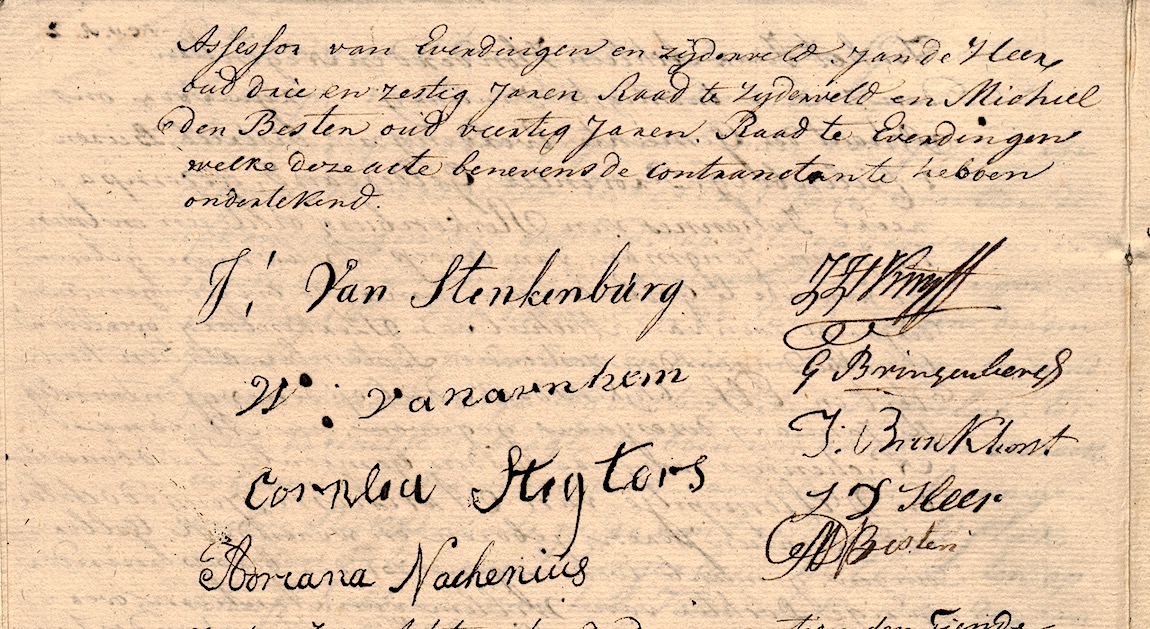 Assessor van Everdingen en zijderveld. Jan de Heer,
oud drie en zestig Jaren Raad te Zijderveld en Michiel
den Besten oud veertig Jaren. Raad te Everdingen
welke deze acte benevens de contranctante hebben
ondertekend.
J: Van Stenkenburg
W: vanarnhem
Cornlia Stigters
Adriana Nachenius
G Bringenberg
J: Brinkhorst
J D Heer
MD Besten